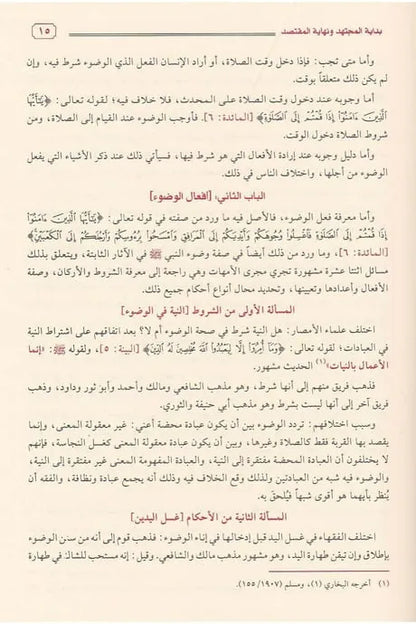 بداية المجتهد ونهاية المقتصد
١٥
وأما متى تجب: فإذا دخل وقت الصلاة، أو أراد الإنسان الفعل الذي الوضوء شرط فيه، وإن
لم يكن ذلك متعلقاً بوقت.
أما وجوبه عند دخول وقت الصلاة على المحدث، فلا خلاف فيه؛ لقوله تعالى: ﴿يَٰٓأَيُّهَا
ٱلَّذِينَ ءَامَنُوٓاْ إِذَا قُمۡتُمۡ إِلَى ٱلصَّلَوٰةِ﴾ [المائدة: ٦]. فأوجب الوضوء عند القيام إلى الصلاة، ومن
شروط الصلاة دخول الوقت.
وأما دليل وجوبه عند إرادة الأفعال التي هو شرط فيها، فسيأتي ذلك عند ذكر الأشياء التي يفعل
الوضوء من أجلها، واختلاف الناس في ذلك.
الباب الثاني: [أفعال الوضوء]
وأما معرفة فعل الوضوء، فالأصل فيه ما ورد من صفته في قوله تعالى: ﴿يَٰٓأَيُّهَا ٱلَّذِينَ ءَامَنُوٓاْ
إِذَا قُمۡتُمۡ إِلَى ٱلصَّلَوٰةِ فَٱغۡسِلُواْ وُجُوهَكُمۡ وَأَيۡدِيَكُمۡ إِلَى ٱلۡمَرَافِقِ وَٱمۡسَحُواْ بِرُءُوسِكُمۡ وَأَرۡجُلَكُمۡ إِلَى ٱلۡكَعۡبَيۡنِ﴾
[المائدة: ٦]، وما ورد من ذلك أيضاً في صفة وضوء النبي ﷺ في الآثار الثابتة، ويتعلق بذلك
مسائل اثنتا عشرة مشهورة تجري مجرى الأمهات وهي راجعة إلى معرفة الشروط والأركان، وصفة
الأفعال وأعدادها وتعيينها، وتحديد محال أنواع أحكام جميع ذلك.
المسألة الأولى من الشروط [النية في الوضوء]
اختلف علماء الأمصار: هل النية شرط في صحة الوضوء أم لا؟ بعد اتفاقهم على اشتراط النية
في العبادات؛ لقوله تعالى: ﴿وَمَآ أُمِرُوٓاْ إِلَّا لِيَعۡبُدُواْ ٱللَّهَ مُخۡلِصِينَ لَهُ ٱلدِّينَ﴾ [البينة: ٥]، ولقوله ﷺ: «إنما
الأعمال بالنيات»(١) الحديث مشهور.
فذهب فريق منهم إلى أنها شرط، وهو مذهب الشافعي ومالك وأحمد وأبو ثور وداود، وذهب
فريق آخر إلى أنها ليست بشرط وهو مذهب أبي حنيفة والثوري.
وسبب اختلافهم: تردد الوضوء بين أن يكون عبادة محضة أعني: غير معقولة المعنى، وإنما
يقصد بها القربة فقط كالصلاة وغيرها، وبين أن يكون عبادة معقولة المعنى كغسل النجاسة، فإنهم
لا يختلفون أن العبادة المحضة مفتقرة إلى النية، والعبادة المفهومة المعنى غير مفتقرة إلى النية،
والوضوء فيه شبه من العبادتين ولذلك وقع الخلاف فيه وذلك أنه يجمع عبادة ونظافة، والفقه أن
يُنظر بأيهما هو أقوى شبهاً فيُلحق به.
المسألة الثانية من الأحكام [غسل اليدين]
اختلف الفقهاء في غسل اليد قبل إدخالها في إناء الوضوء: فذهب قوم إلى أنه من سنن الوضوء
بإطلاق وإن تيقن طهارة اليد، وهو مشهور مذهب مالك والشافعي. وقيل: إنه مستحب للشاك في طهارة
(١) أخرجه البخاري (١)، ومسلم (١٩٠٧/ ١٥٥).